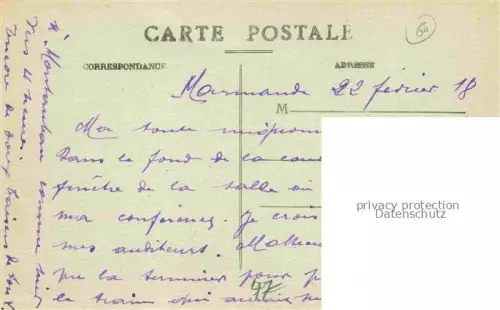 CARTE POSTALE
CORRESPONDANCE
ADRESSE
Marmande 22 février 18
M
Ma toute mignonne
Dans le fond de la cour
fenêtre de la salle où
ma conférence. Je crois
mes auditeurs.
pu la terminer pour
le train qui
47
à Montauban comme
vers 4 heures.
Encore de doux baisers de ton
privacy protection
Datenschutz
60